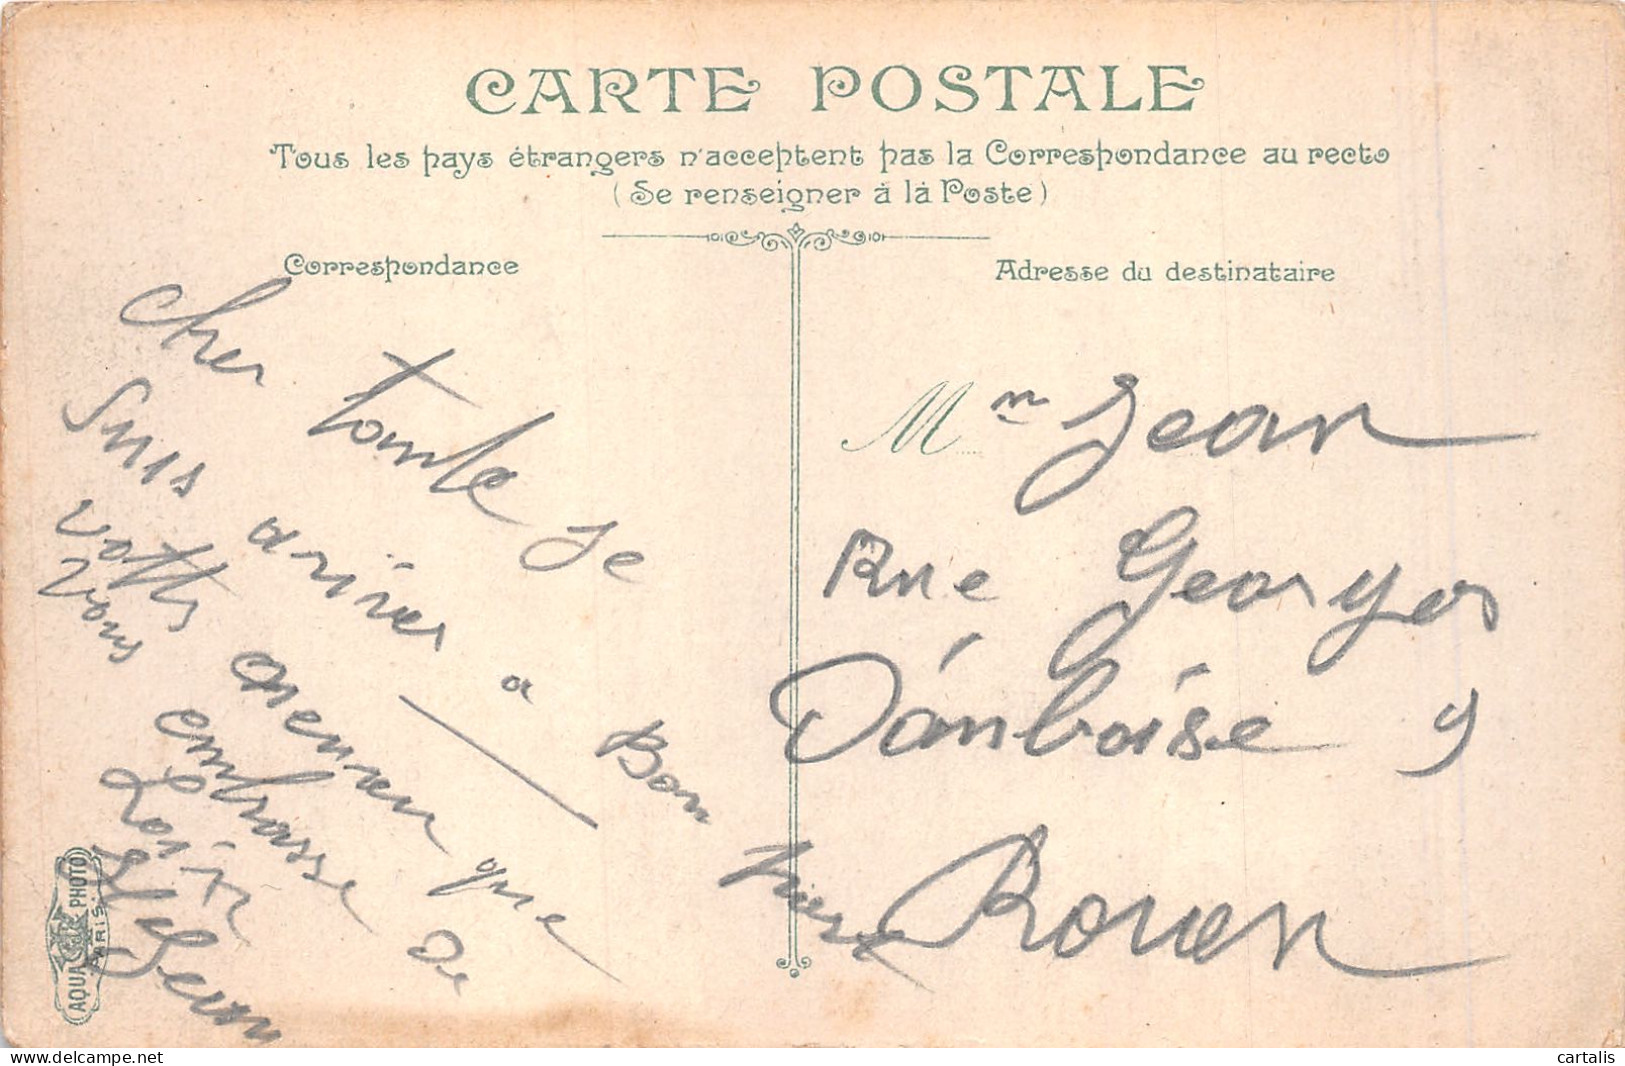 CARTE POSTALE
Tous les pays étrangers n'acceptent pas la Correspondance au recto
(Se renseigner à la Poste)
Correspondance
Cher tante je
suis ariver a Bon
votts neveu que
vous embrasse de
Loin
Jean
Adresse du destinataire
Mm Jean
Rue Georges
D'anboise 9
Rouen
AQUA PHOTO
PARIS
cartalis